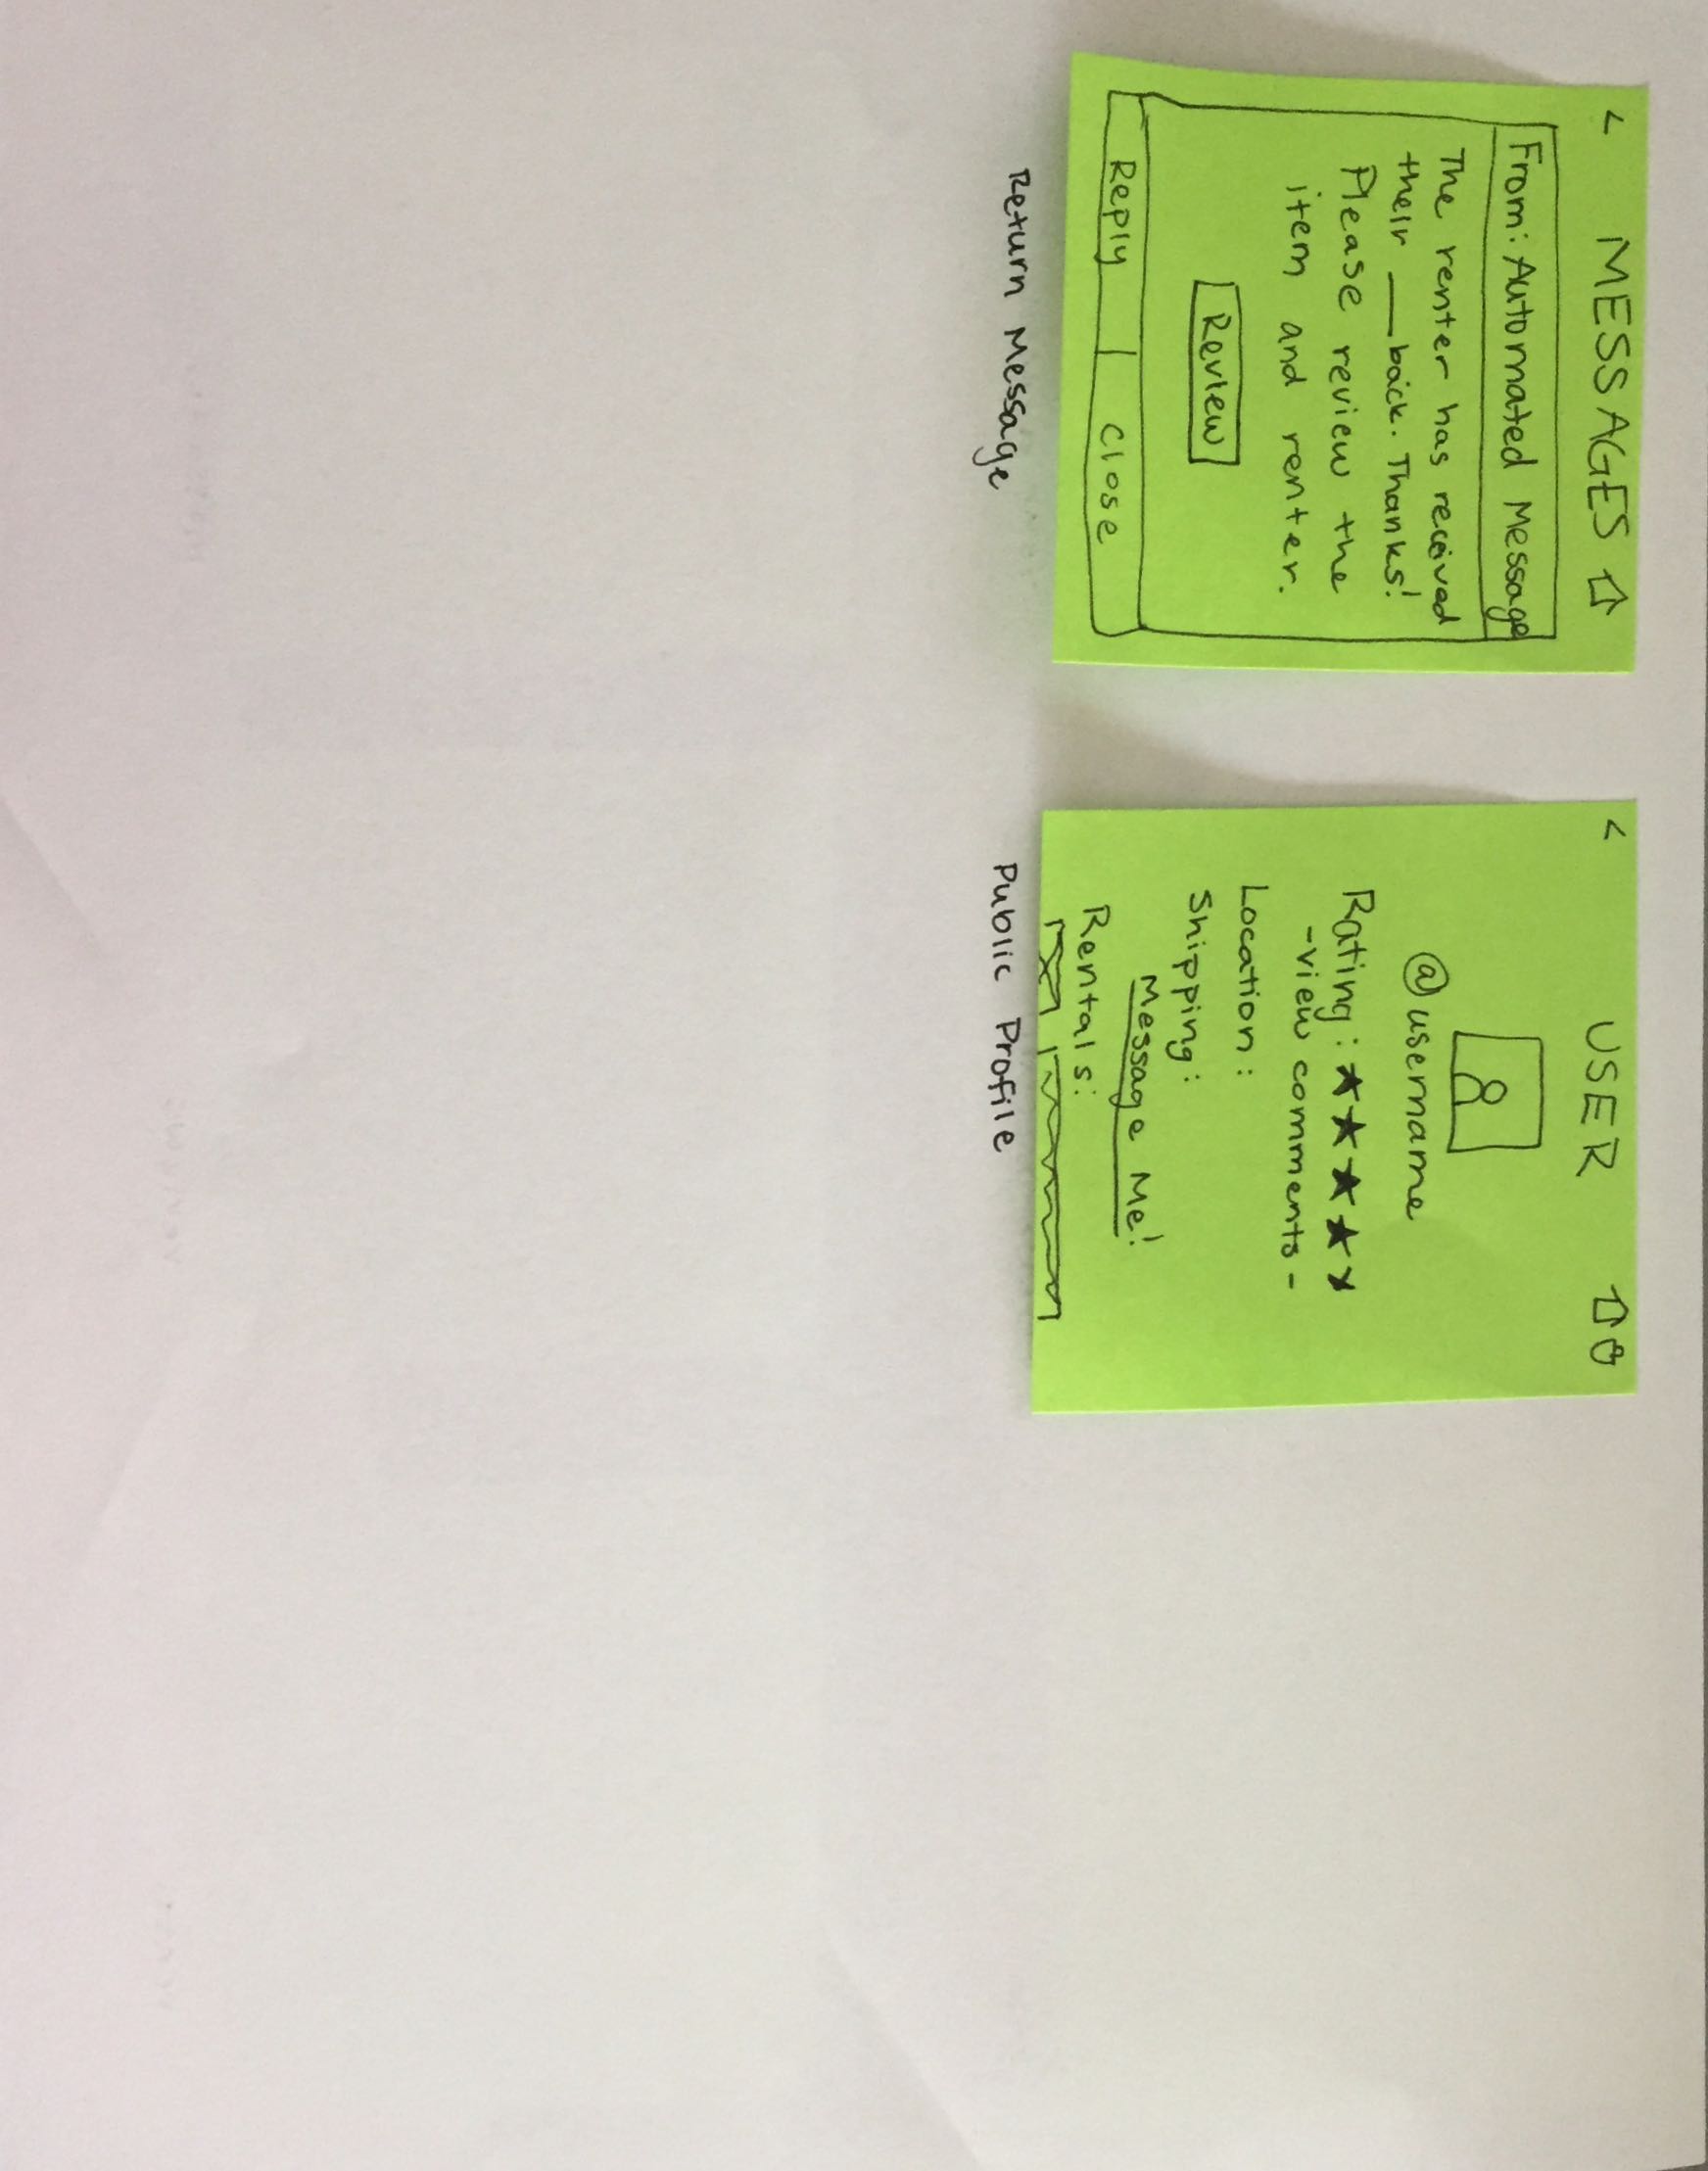 < MESSAGES
From: Automated Message
The renter has received
their ___ back. Thanks!
Please review the
item and renter.
Review
Reply | Close
Return Message
< USER
@username
Rating: ★★★★★
-view comments-
Location:
Shipping:
Message Me!
Rentals:
Public Profile